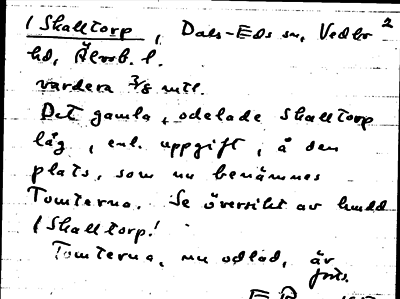 /Skalltorp, Dals-Eds sn, Vedbo 2
hd, Älvsb. l.
vardera 3/8 mtl.
Det gamla, odelade Skalltorp
låg, enl. uppgift, å den
plats, som nu benämnes
Tomterna. Se översikt av
/Skalltorp!
Tomterna, nu odlad, är
forts.